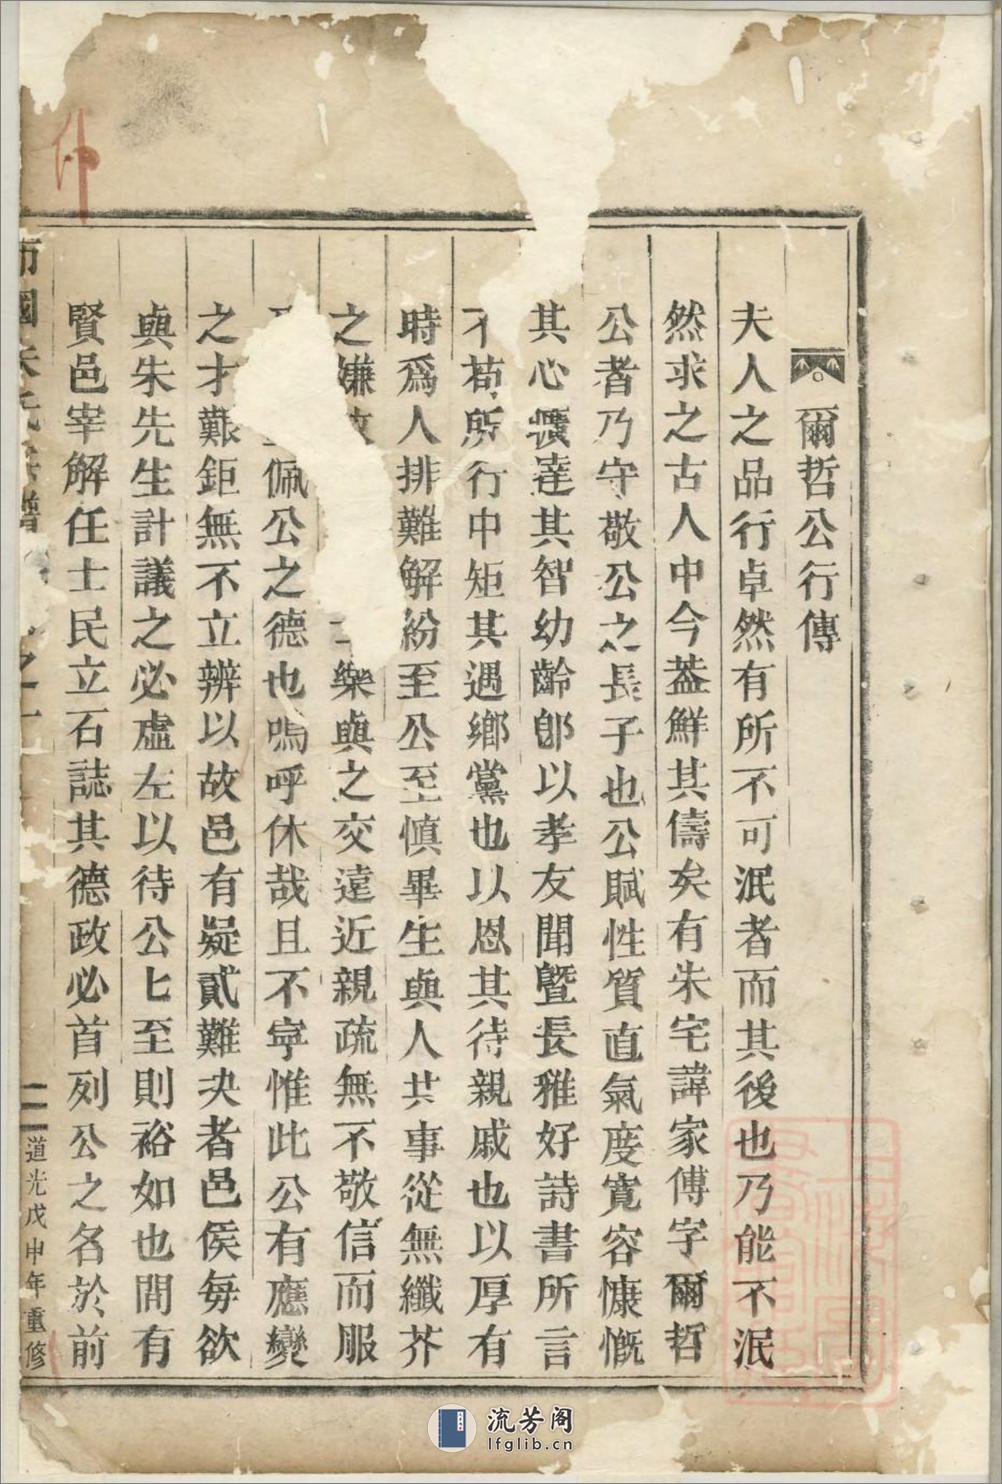 爾哲公行傳
夫人之品行卓然有所不可泯者而其後也乃能不泯
然求之古人中今葢鮮其儔矣有朱宅諱家傅字爾哲
公者乃守敬公之長子也公賦性質直氣度寬容慷慨
其心曠達其智幼齡卽以孝友聞曁長雅好詩書所言
不苟所行中矩其遇鄉黨也以恩其待親戚也以厚有
時爲人排難解紛至公至慎畢生與人共事從無纖芥
之嫌 樂與之交遠近親疏無不敬信而服
佩公之德也嗚呼休哉且不寕惟此公有應變
之才艱鉅無不立辨以故邑有疑貳難决者邑侯每欲
與朱先生計議之必虛左以待公七至則裕如也間有
賢邑宰解任士民立石誌其德政必首列公之名於前
國朱氏宗譜 之 二 道光戊申年重修
流芳阁
lfglib.cn